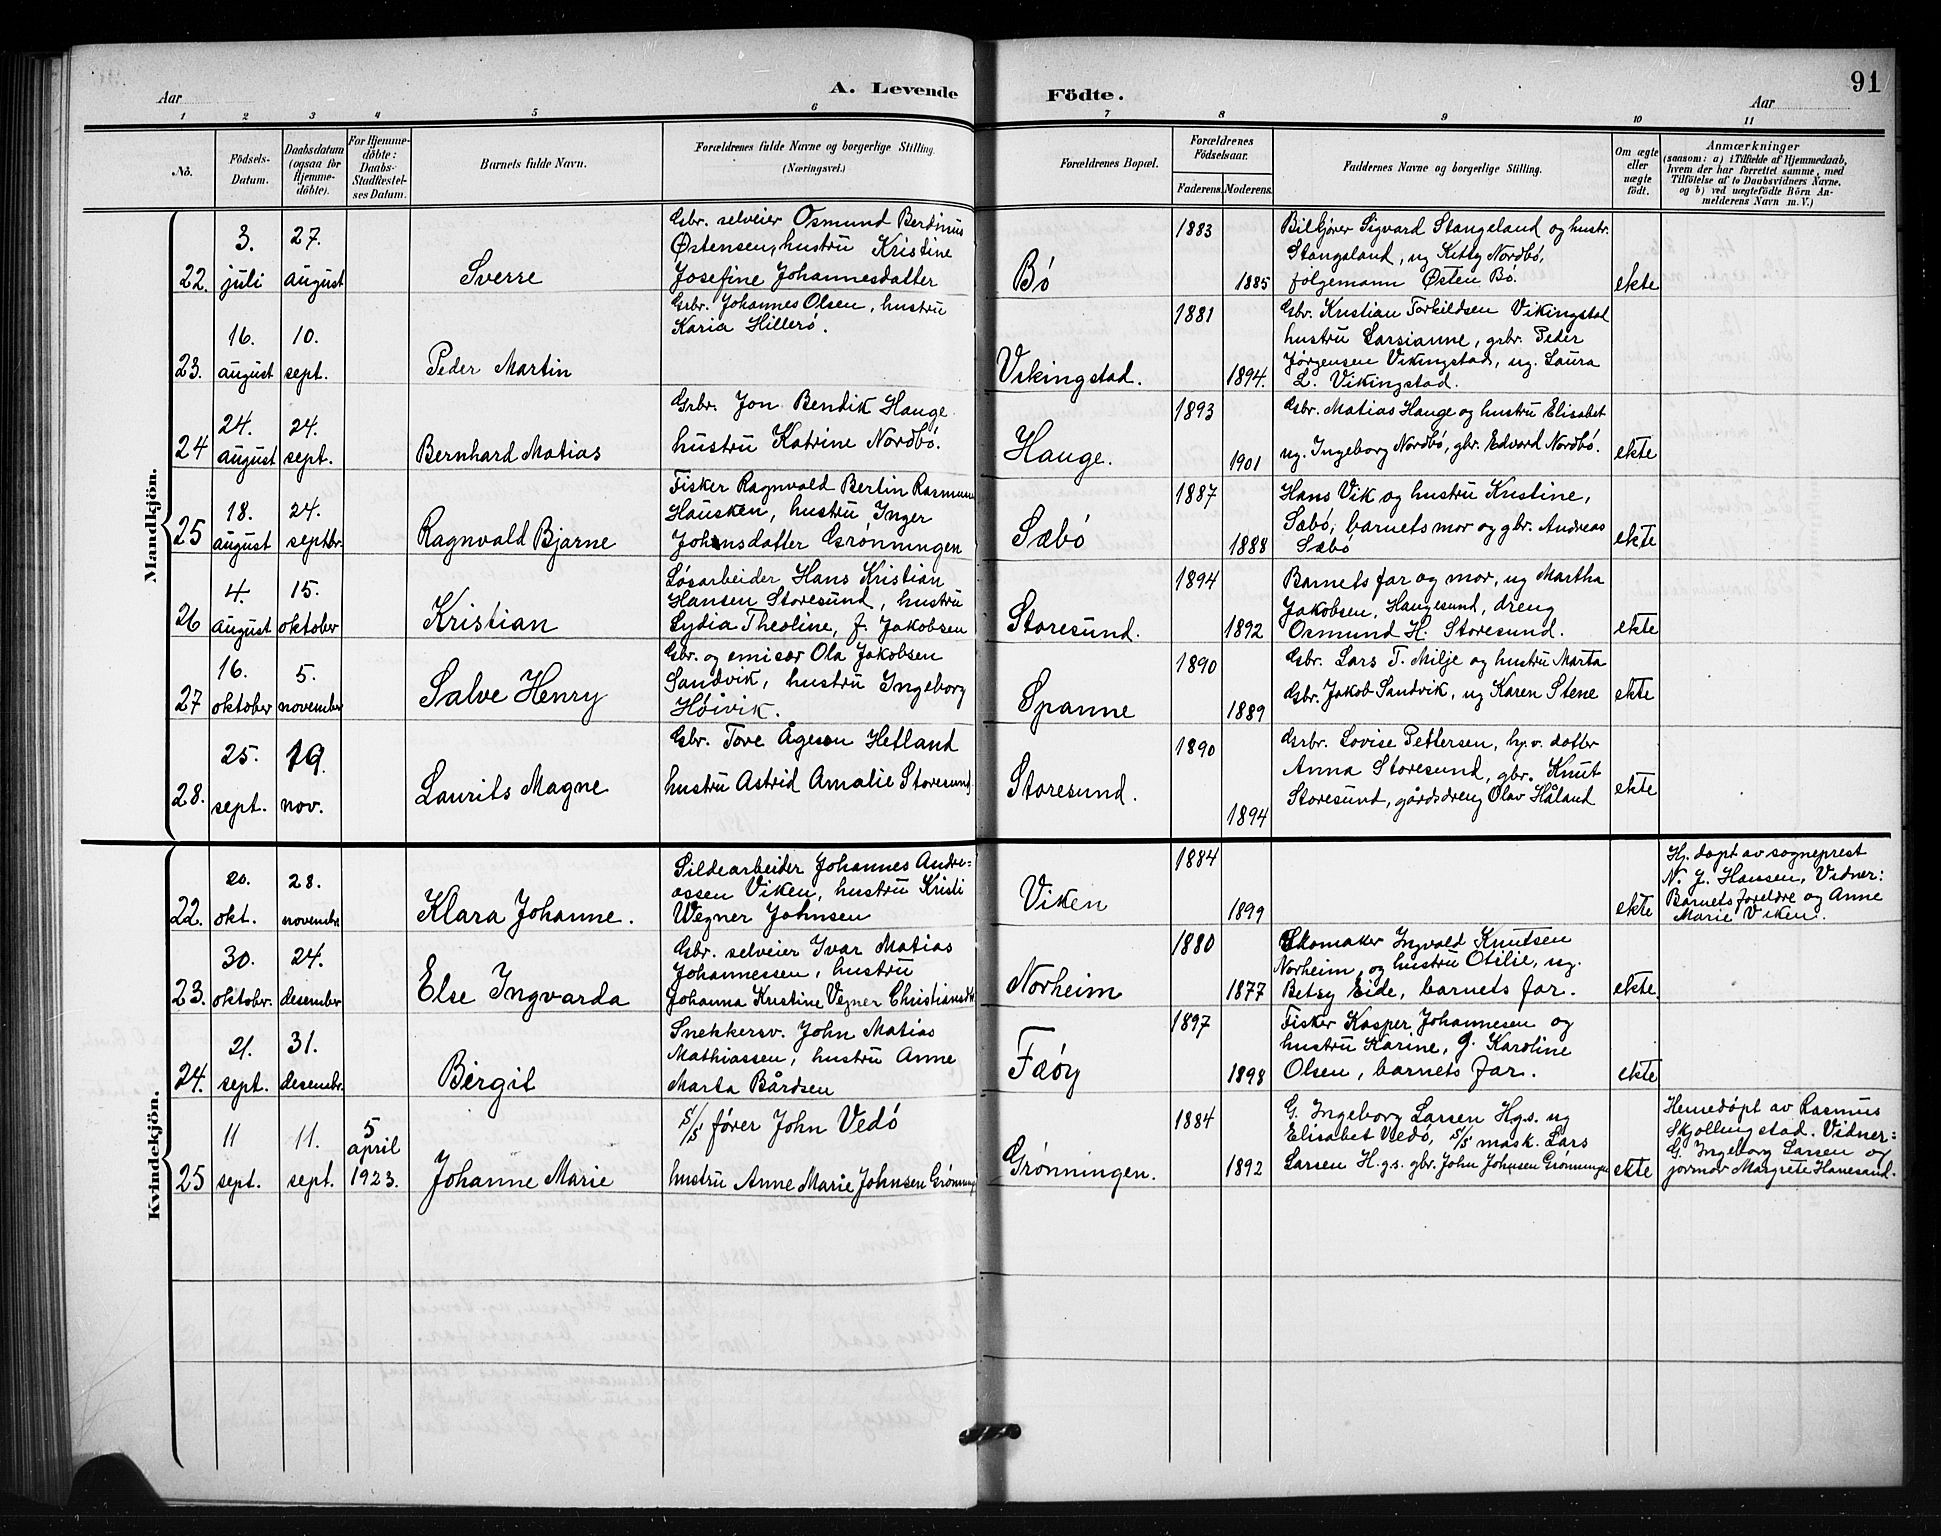 91
Aar
A. Levende
Födte.
Aar
1 2 3 4 5 6 7 8 9 10 11
No.
Födsels-
Datum.
Daabsdatum
(ogsaa for
Hjemme-
döbte).
For Hjemme-
döbte:
Daabs-
Stadfæstel-
ses Datum.
Barnets fulde Navn.
Forældrenes fulde Navne og borgerlige Stilling.
(Næringsvei.)
Forældrenes Bopæl.
Forældrenes
Födselsaar.
Faderens. Moderens.
Faddernes Navne og borgerlige Stilling.
Om ægte
eller
uægte
födt.
Anmærkninger
(saasom: a) i Tilfælde af Hjemmedaab,
hvem der har forrettet samme, med
Tilföielse af to Daabsvidners Navne,
og b) ved uægtefödte Börn An-
melderens Navn m. V.)
Mandkjön.
22.
3.
juli
27.
august
Sverre
Gbr. selveier Osmund Berdinus
Østensen, hustru Kristine
Josefine Johannesdatter
Bö
1883
1885
Bilkjører Sigvard Stangeland og hustr.
Stangeland, ug Kitty Nordbö,
følgemann Østen Bö.
ekte
23.
16.
august
10.
sept.
Peder Martin
Grbr. Johannes Olsen, hustru
Karia Hillerö.
Vikingstad.
1881
1894.
Gbr. Kristian Torkildsen Vikingstad
hustru Larsianne, grbr. Peder
Jørgensen Vikingstad, ug. Laura
L. Vikingstad.
24
24.
august
24.
sept.
Bernhard Matias
Grbr. Jon Bendik Hauge
hustru Katrine Nordbö.
Hauge.
1893
1901
Gbr. Matias Hauge og hustru Elisabet
ug. Ingeborg Nordbö, gbr. Edvard Nordbö.
ekte
25
18.
august
24.
septbr.
Ragnvald Bjarne
Fisker Ragnvald Bertin Rasmus
Hausken, hustru Inger
Johnsdatter Grønningen
Sæbö
1887
1888
Hans Vik og hustru Kristine,
Sæbö, barnets mor og gbr. Andreas
Sæbö
ekte
26
4.
august
15.
oktober
Kristian
Løsarbeider Hans Kristian
Hansen Storesund, hustru
Lydia Theoline, f. Jakobsen
Storesund.
1894
1892
Barnets far og mor, ug Martha
Jakobsen, Haugesund, dreng
Osmund H. Storesund.
ekte
27
16.
oktober
5.
november
Salve Henry
Gbr. og emisær Ola Jakobsen
Sandvik, hustru Ingeborg
Høivik.
Spanne
1890
1889
Gbr. Lars T. Milje og hustru Marta
Gbr. Jakob Sandvik, ug Karen Stene
ekte
28.
25.
sept.
19.
nov.
Laurits Magne
Gbr. Tore Ågesen Hetland
hustru Astrid Amalie Storesund
Storesund.
1890
1894
Grbr. Lovise Pettersen, hp.v. datter
Anna Storesund, gbr. Knut
Storesund, gårdsdreng Olav Håland
ekte
Kvindekjön.
22.
20.
okt.
28.
novembr.
Klara Johanne.
Sildearbeider Johannes Andre=
assen Viken, hustru Kristi
Wegner Johnsen
Viken
1884
1899
ekte
Hj. døpt av sogneprest
N. J. Hansen, Vidner:
Barnets foreldre og Anne
Marie Viken.
23.
30.
oktober.
24.
desember
Else Ingvarda
Gbr. selveier Ivar Matias
Johannessen, hustru
Johanna Kristine Vegner Christiansdt.
Norheim
1880
1877
Skomaker Ingvald Knutsen
Norheim, og hustru Otilie, ug.
Betsy Eide, barnets far.
ekte.
24.
21.
sept.
31.
desembr.
Birgit
Snekkersv. John Matias
Mathiassen, hustru Anne
Marta Bårdsen
Føöy
1897
1898
Fisker Kasper Johannesen og
hustru Karine, G. Karoline
Olsen, barnets far.
ekte
25
11
sept.
11.
sept.
5
april
1923.
Johanne Marie
S/S fører John Vedö
hustru Anne Marie Johnsen Grønning
Grønningen.
1884
1892
G. Ingeborg Larsen Hgs. ug
Elisabet Vedö, S/S mask. Lars
Larsen H.gs. gbr. John Johnsen Grønningen
ekte
Hemedøpt av Rasmus
Skjollingstad. Vidner:
G. Ingeborg Larsen og
jormor Margrete Hanesand.